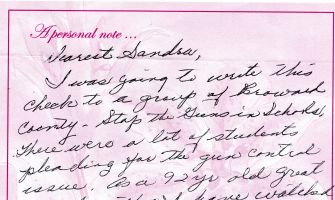 A personal note ...
Dearest Sandra,
I was going to write this
check to a group of Broward
County - Stop the Guns in Schools,
There were a lot of students
pleading for the gun control
issue. As a 92 yr old great
I have watched